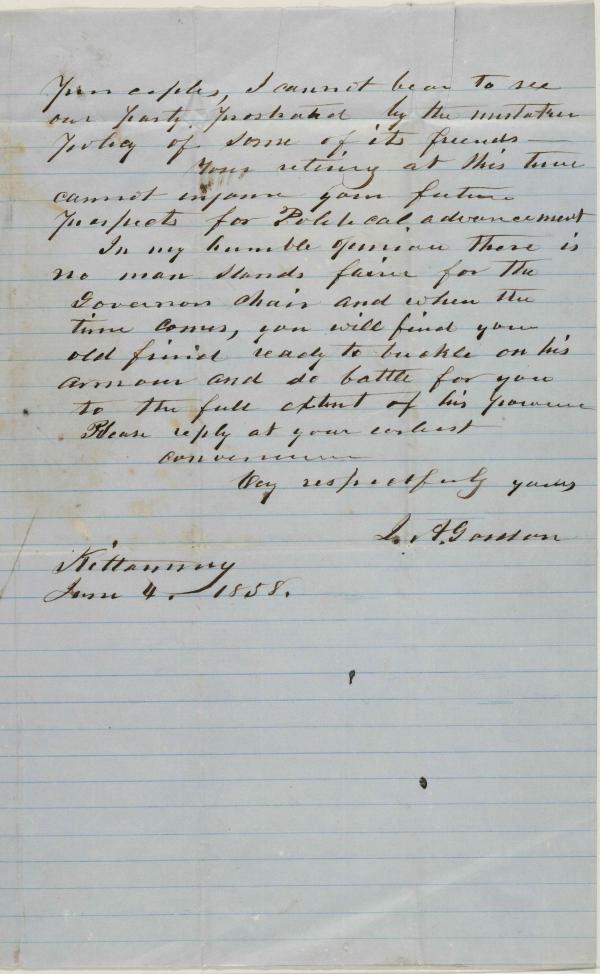 Principles, I cannot bear to see
our Party Prostrated by the mistaken
Policy of some of its friends —
Your retiring at this time
cannot injure your future
Prospects for Political advancement
In my humble opinion there is
no man stands fairer for the
Governors chair and when the
time comes, you will find your
old friend ready to buckle on his
armour and do battle for you
to the full extent of his power
Please reply at your earliest
convenience
Very respectfully yours
A.
Kittanning
June 4. 1858.